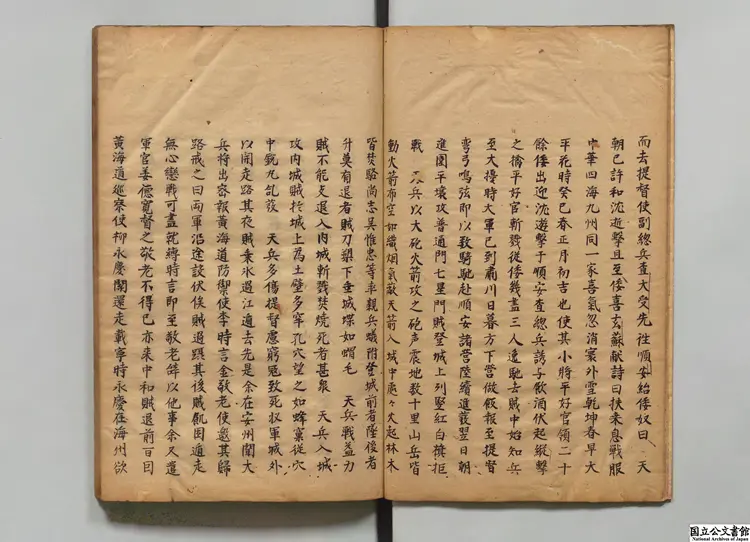 而去提督使副總兵査大受先徃順安紿倭奴曰 天
朝已許和沈遊擊且至倭喜玄蘇獻詩曰扶桒息戰服
中華四海九州同一家喜氣忽消寰外雪乾坤春早太
平花時癸巳春正月初吉也使其小將平好官領二十
餘倭出迎沈遊擊于順安査總兵誘与飮酒伏起縱擊
之擒平好官斬戮從倭幾盡三人逸馳去賊中始知兵
至大擾時大軍已到肅川日暮方下營做飯報至提督
彎弓鳴弦即以数騎馳赴順安諸營陸續進發翌日朝
進圍平壤攻普通門七星門賊登城上列竪紅白旗拒
戰 天兵以大砲火箭攻之砲声震地数十里山岳皆
動火箭布空如織烟氣蔽天箭入城中處々火起林木
皆焚駱尚志吳惟忠等率親兵蟻附登城前者墜後者
升莫有退者賊刀槊下垂城堞如蝟毛 天兵戰益力
賊不能支退入内城斬戮焚焼死者甚衆 天兵入城
攻内城賊扵城上為土壁多穿孔穴望之如蜂窠從穴
中銃丸乱發 天兵多傷提督慮窮冦致死収軍城外
以開走路其夜賊乗氷過江遁去先是余在安州聞大
兵將出宻報黄海道防禦使李時言金敬老使邀其歸
路戒之曰兩軍沿途設伏俟賊過躡其後賊飢困遁走
無心戀戰可盡就縛時言即至敬老辞以他事余又遣
軍官姜德寬督之敬老不得已亦来中和賊退前一日因
黄海道巡察使柳永慶関還走載寧時永慶在海州欲
国立公文書館
National Archives of Japan